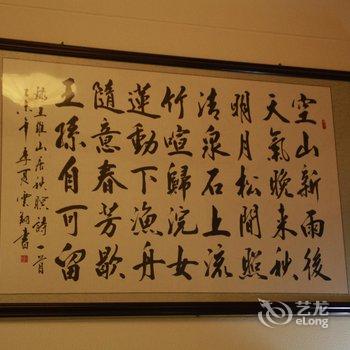 空山新雨後
天氣晚来秋
明月松間照
清泉石上流
竹喧歸浣女
蓮動下漁舟
隨意春芳歇
王孫自可留
錄王維山居秋暝詩一首
年季夏書
艺龙
eLong